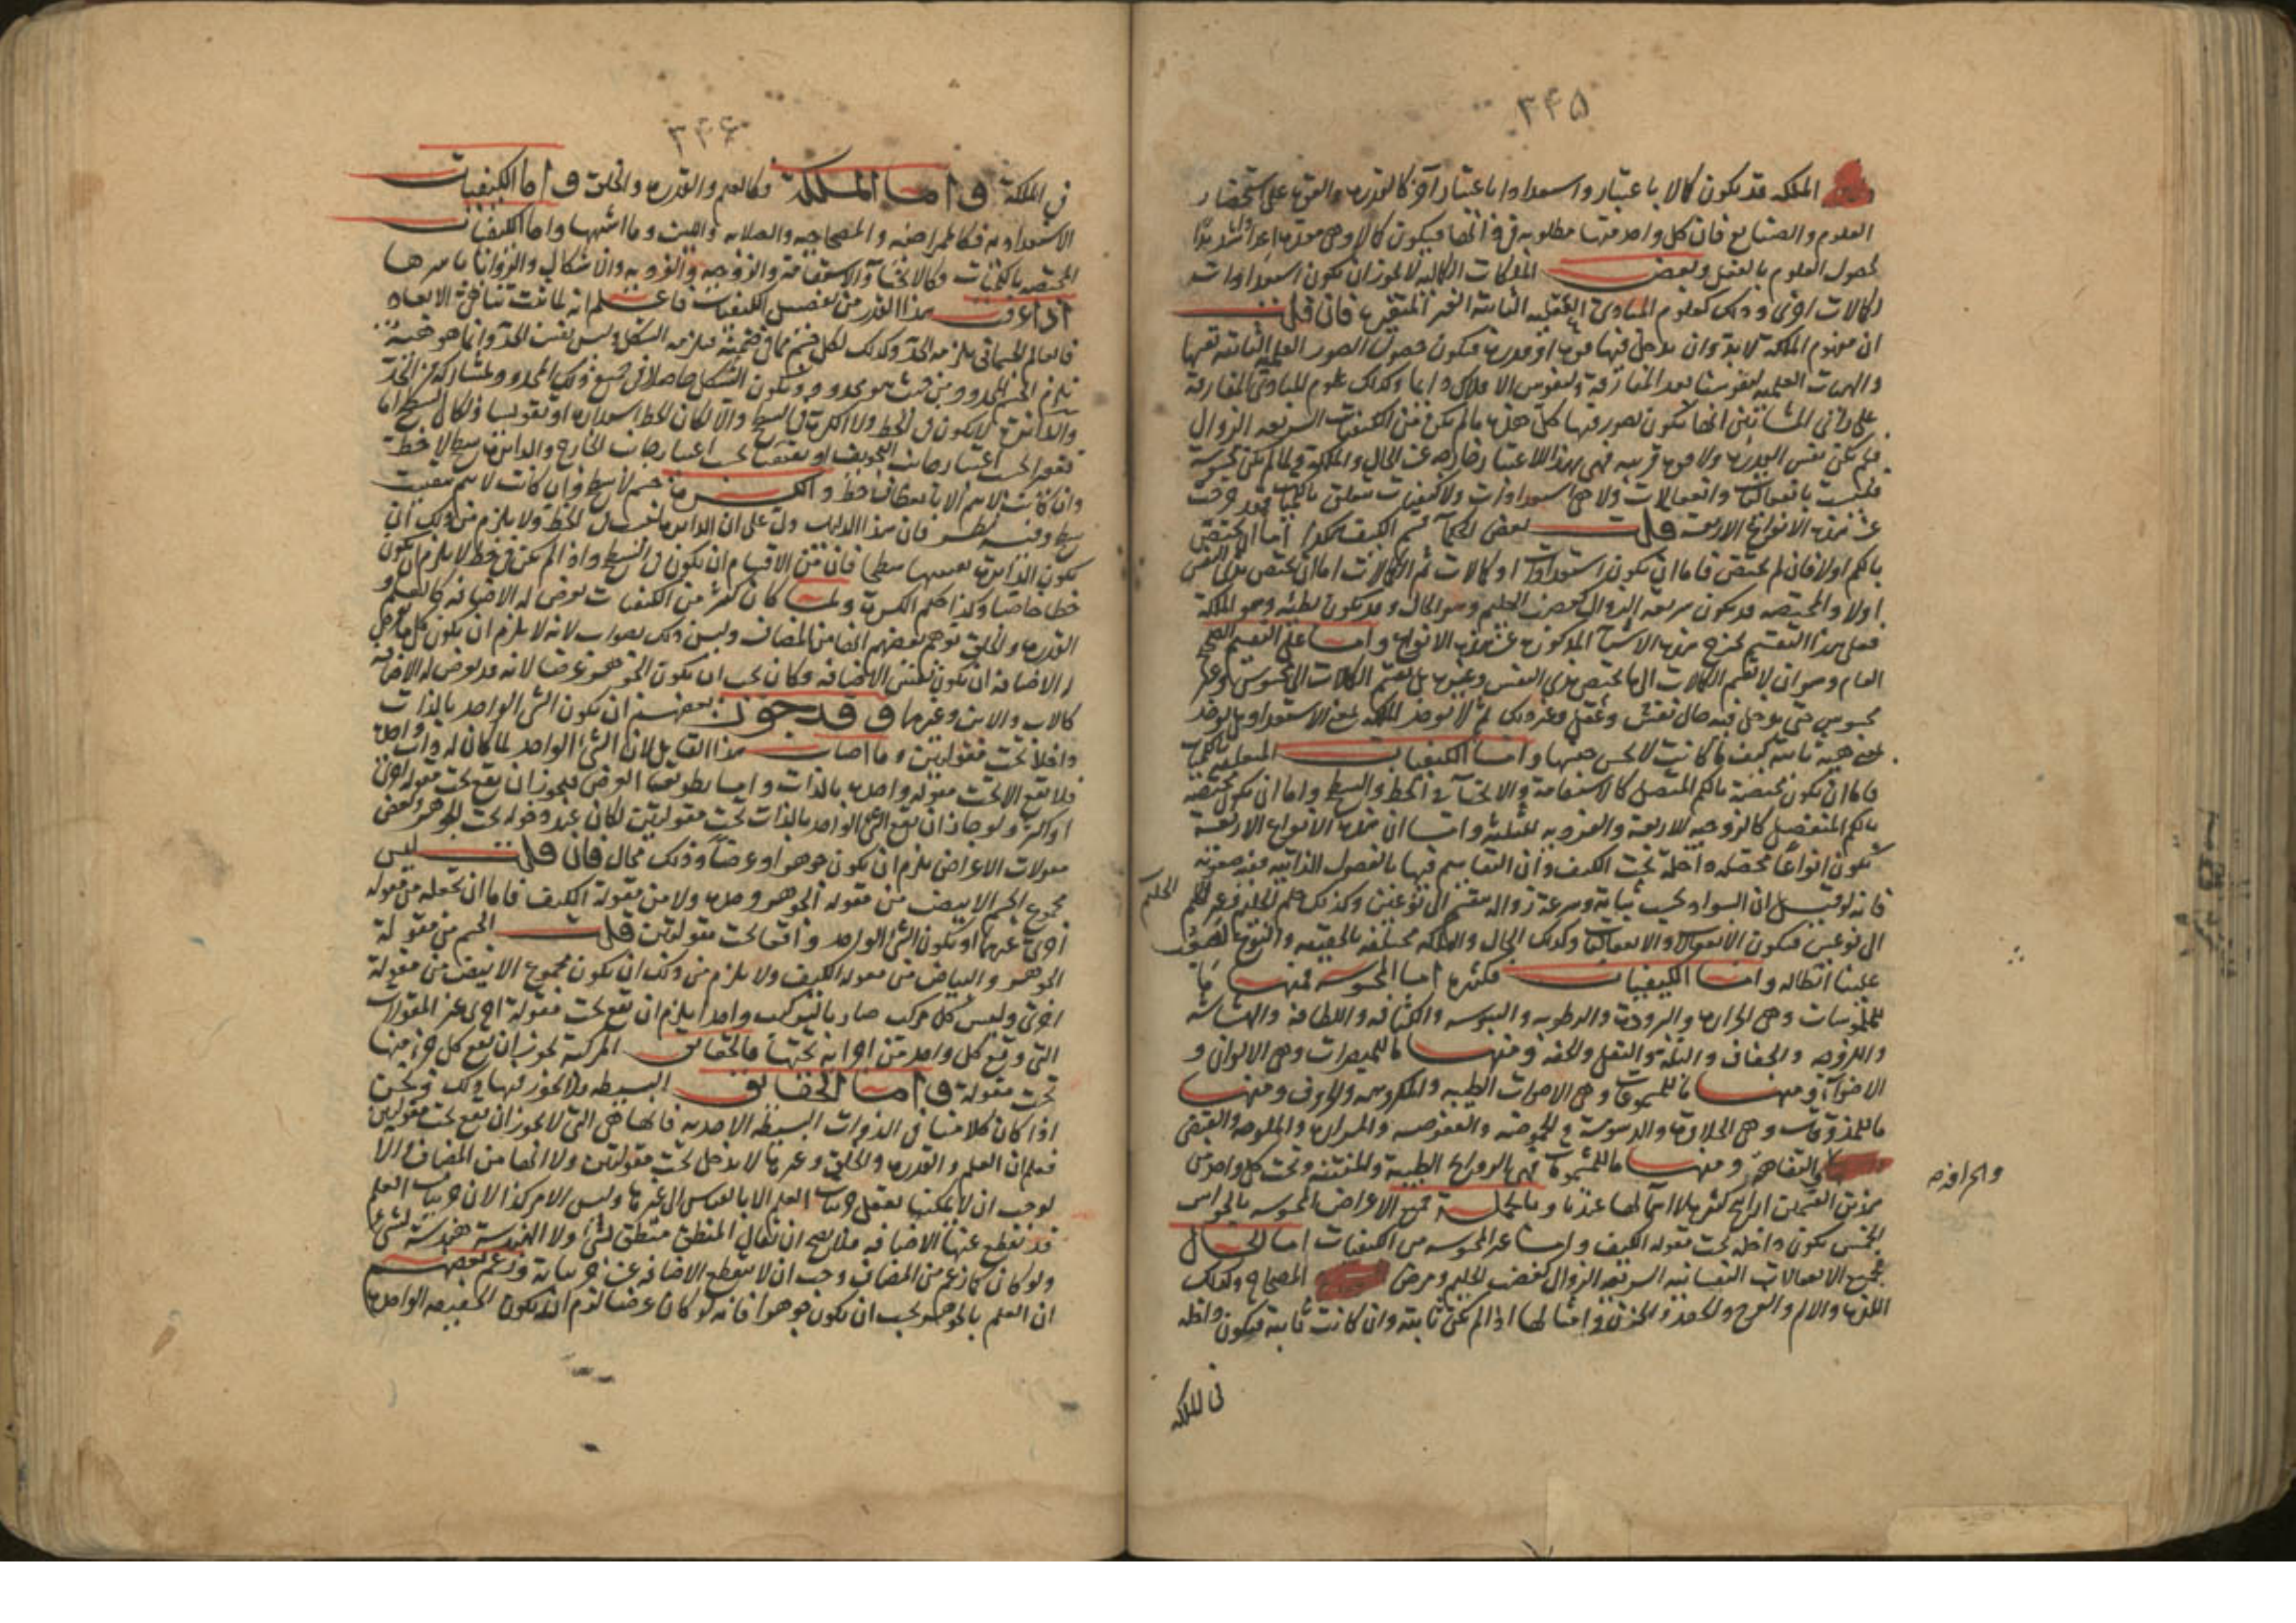 ٣٤٥
الملكة قد يكون كمالا باعتبار واستعدادا باعتبار آخر كالقدرة والقوة على استحضار
العلوم والصنايع فان كل واحد منها مطلوبة في فيكون كمالا وهي معدة اعدادا شديدا
لحصول العلوم بالفعل وبعض الملكات الكمالية لا يجوز ان يكون استعدادات
لكمالات اخرى وذلك كعلوم المبادئ العقلية الثابتة الغير المتغيرة فان قلت
ان مفهوم الملكة لا بد وان يدخل فيها قوة او قدرة فيكون حصول الصور العلمية الثابتة
والهيئات العلمية لنفوسنا بعد المفارقة ولنفوس الافلاك دايما وكذلك علوم المبادئ المفارقة
على راى المشائين انها يكون بصور فيها كل هذه ما لم يكن من الكيفيات السريعة الزوال
فلم يكن نفس القدرة ولا قوة قريبة فهي بهذا الاعتبار خارجة عن الحال والملكة
فليست بانفعاليات وانفعالات ولا هي استعدادات ولا كيفيات تتعلق بالكميات فقد خرجت
عن هذه الانواع الاربعة قلت بعض الحكماء قسم الكيف هكذا اما ان يختص
بالكم اولا فان لم يختص فاما ان يكون استعدادات او كمالات ثم الكمالات اما ان يختص بذى النفس
اولا والمختصة قد يكون سريعة الزوال كغضب الحليم وهو الحال وقد يكون بطيئة وهو الملكة
فعلى هذا التقسيم يخرج هذه الاشياء المذكورة عن هذه الانواع واما على التقسيم الصحيح
العام وهو ان لا يقسم الكمالات الى ما يختص بذى النفس وغيره بل يقسم الكمالات الى محسوس وغير
محسوس حتى يدخل فيه حال نفس وعقل وغير ذلك ثم لا يؤخذ الملكة بمعنى الاستعداد بل يؤخذ
بمعنى هيئة ثابتة كيف ما كانت لا يحس جنسها واما الكيفيات المتعلقة بالكميات
فاما ان يكون مختصة بالكم المتصل كالاستقامة والانحناء في الخط والبسيط واما ان يكون مختصة
بالكم المنفصل كالزوجية للاربعة والفردية للثلثة واما ان هذه الانواع الاربعة
يكون انواعا محصلة داخلة تحت الكيف وان التقاسيم فيها بالفصول الذاتية ففيه صعوبة
فانه لو قيل ان السواد بحسب ثباته وسرعة زواله منقسم الى نوعين وكذلك علم الحليم وغير الحليم
الحليم
الى نوعين فيكون الانفعال والانفعاليات وكذلك الحال والملكة مختلفة بالحقيقة والنوع لصعب
علينا ابطاله واما الكيفيات فكثيرة اما المحسوسة فمنها ما
للملموسات وهي الحرارة والبرودة والرطوبة واليبوسة والكثافة واللطافة والهشاشة
واللزوجة والجفاف والبلة والثقل والخفة ومنها ما للمبصرات وهي الالوان و
الاضواء ومنها ما للمسموعات وهي الاصوات الطيبة والمكروهة والحروف ومنها
ما للمذوقات وهي الحلاوة والدسومة والحموضة والعفوصة والمرارة والملوحة والقبض
والتفاهة ومنها ما للمشمومات فهي الروايح الطيبة والمنتنة وتحت كل واحد من
والحرافة
هذين القسمين اراييح كثيرة لا اسماء لها عندنا وبالجملة فجميع الاعراض المحسوسة بالحواس
الخمس يكون داخلة تحت مقولة الكيف واما غير المحسوسة من الكيفيات اما الحال
فجميع الانفعالات النفسانية السريعة الزوال كغضب الحليم ومرض المصحاح وكذلك
اللذة والالم والفرح والحقد والحزن وامثالها اذا لم يكن ثابتة وان كانت ثابتة فيكون داخلة
في الملكة
٣٤٦
في الملكة واما الملكة فكالعلم والقدرة والخلق واما الكيفيات
الاستعدادية فكالممراضية والمصحاحية والصلابة واللين وما اشبهها واما الكيفيات
المختصة بالكميات فكالانحناء والاستقامة والزوجية والفردية والاشكال والزوايا باسرها
اذا عرفت هذا القدر من تفصيل الكيفيات فاعلم انه لما ثبت تناهي الابعاد
فالعالم الجسماني يلزمه الحد وكذلك لكل جسم فيلزمه الشكل وليس نفس الحد وانما هو هيئة
تلزم الجسم المحدود من حيث هو محدود ويكون الشكل حاصلا في جميع ذلك المحدود
والدائرة لا يكون في الخط ولا الكرة في البسيط والا لكان للخط استدارة او تقويسا وكان السطح اما
تقعير بحسب اعتبار جانب التجويف او تقبيب بحسب اعتبار جانب الخارج والدائرة سطح لا خط
وان كانت لا يتم الا بانعطاف خط والكرة جسم لا سطح وان كانت لا يتم بتقبيب
سطح وفيه نظر فان هذا الدليل دل على ان الدائرة ليست الخط ولا يلزم من ذلك ان
يكون الدائرة بعينها سطحا فان من الاقسام ان يكون في السطح واذا لم يكن في خط لا يلزم ان يكون
خطا خاصا وكذا حكم الكرة ولما كان كثير من الكيفيات يعرض له الاضافة كالعلم و
القدرة والخلق توهم بعضهم انها من المضاف وليس ذلك بصواب لانه لا يلزم ان يكون كل ما يعرض
له الاضافة ان يكون نفس الاضافة وكان يجب ان يكون الجوهر عرضا لانه قد يعرض له الاضافة
كالاب والابن وغيرهما وقد جوز بعضهم ان يكون الشئ الواحد بالذات
داخلا تحت مقولتين وما اصاب هذا القايل لان الشئ الواحد لما كان له ذات واحدة
فلا يقع الا تحت مقولة واحدة بالذات واما بطريق العرض فيجوز ان يقع تحت مقولة اخرى
او اكثر ولو جاز ان يقع الشئ الواحد بالذات تحت مقولتين لكان عند دخوله تحت الجوهر وبعض
مقولات الاعراض يلزم ان يكون جوهرا وعرضا وذلك محال فان قلت ليس
مجموع الجسم الابيض من مقولة الجوهر وحده ولا من مقولة الكيف فاما ان تجعله من مقولة
اخرى غيرهما او يكون الشئ الواحد واقعا تحت مقولتين قلت الجسم من مقولة
الجوهر والبياض من مقولة الكيف ولا يلزم من ذلك ان يكون مجموع الابيض من مقولة
اخرى وليس كل مركب صار بالتركيب واحدا يلزم ان يقع تحت مقولة اخرى غير المقولات
التي وقع كل واحد من اجزائه تحتها فالحقايق المركبة يجوز ان يقع كل جزء منها
تحت مقولة واما الحقايق البسيطة فلا يجوز فيها ذلك ونحن
اذا كان كلامنا في الذوات البسيطة الاحدية فانها هي التي لا يجوز ان يقع تحت مقولتين
فعلم ان العلم والقدرة والخلق وغيرها لا يدخل تحت مقولتين ولا انها من المضاف والا
لوجب ان لا يمكننا تعقل جزئيات العلم الا بالقياس الى غيرها وليس الامر كذا لان جزئيات العلم
قد ينقطع عنها الاضافة فلا يصح ان يقال المنطق منطق لشئ ولا الهندسة هندسة لشئ
ولو كان كما زعم من المضاف وجب ان لا ينقطع الاضافة عن جزئياته وزعم بعضهم
ان العلم بالجوهر يجب ان يكون جوهرا فانه لو كان عرضا لزم ان يكون الحقيقة الواحدة